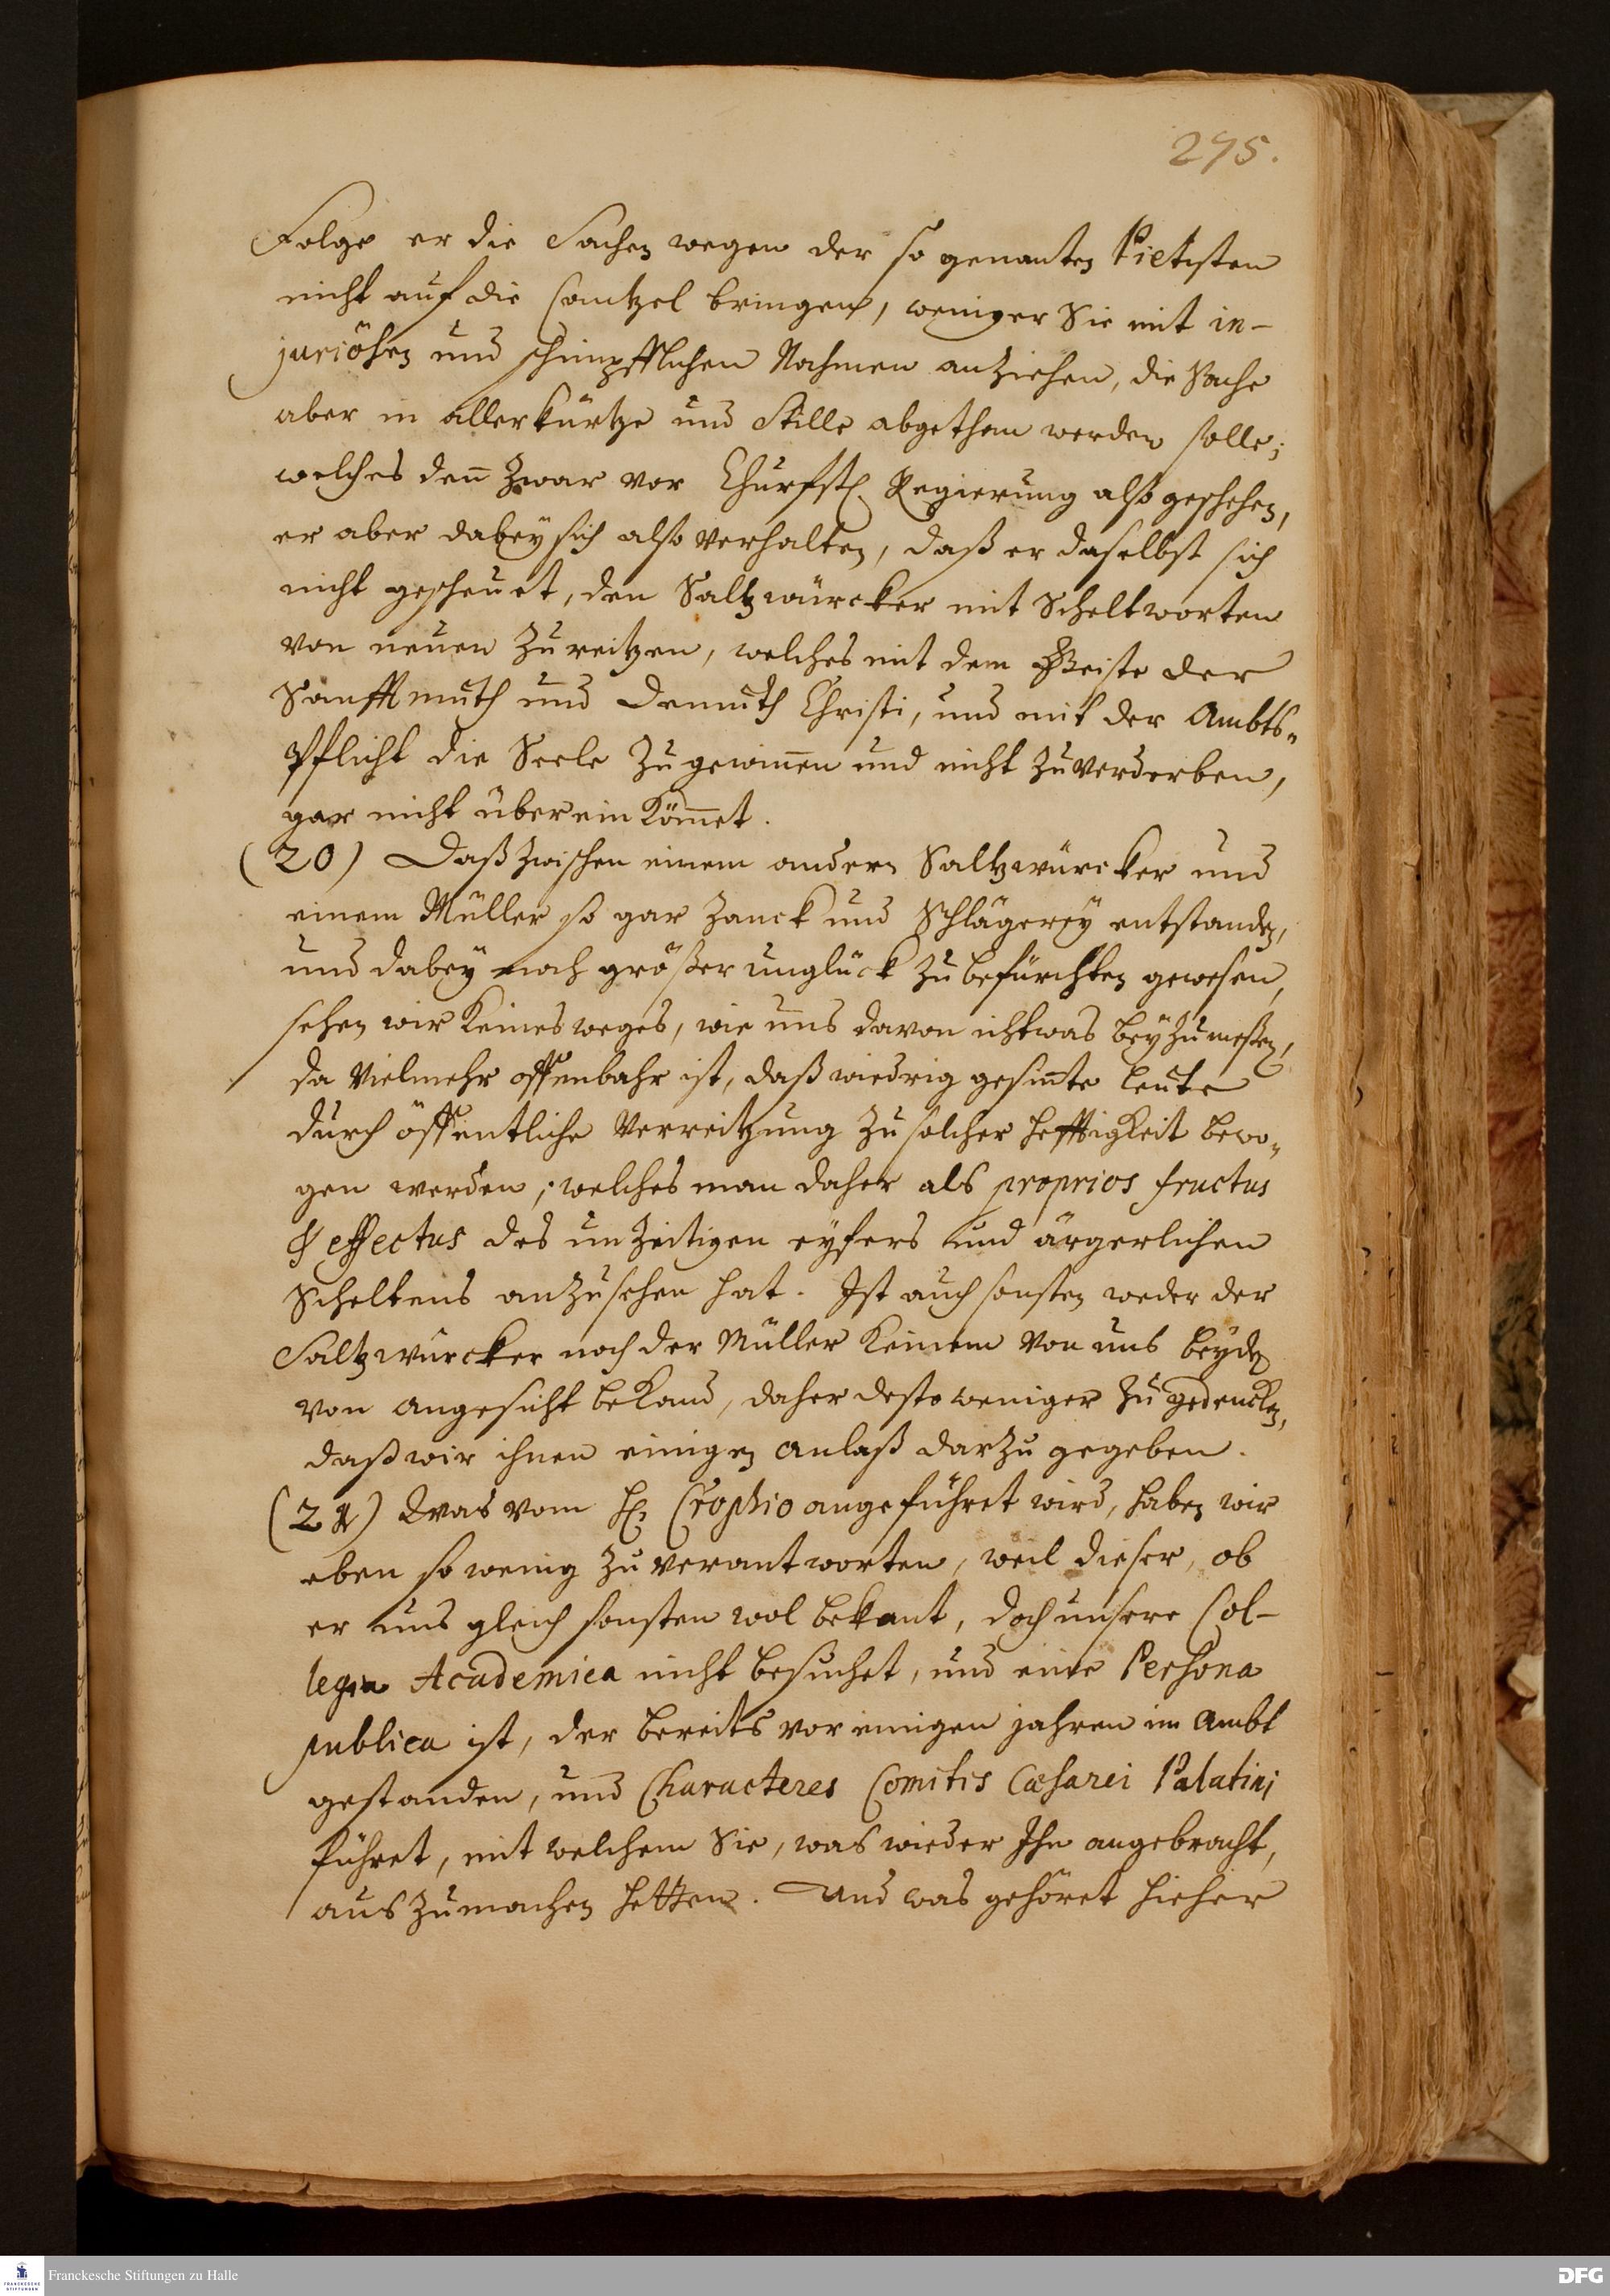 295.
Folge er die Sachen wegen der so genanten Pietisten
nicht auf die Cantzel bringen, weniger Sie mit in-
juriösen und schimpfflichen Nahmen anziehen, die Sache
aber in aller Kürtze und Stille abgethan werden solle;
welches deñ zwar vor Churfstl. Regierung also geschehen,
er aber dabey sich also verhalten, daß er daselbst sich
nicht gescheuet, den Saltzwürcker mit Scheltworten
von neuen zu reitzen, welches mit dem Geiste der
Sanfftmuth und Demuth Christi, und mit der Ambts-
Pflicht die Seele zu gewiñen und nicht zu verderben,
gar nicht überein köm̃et.
(20) Daß zwischen einem andern Saltzwürcker und
einem Müller so gar Zanck und Schlägerey entstanden,
und dabey noch größer unglück zu befürchten gewesen,
sehen wir keines weges, wie uns davon ichtwas beyzumeßen,
da vielmehr offenbahr ist, daß wiedrig gesiñte Leute
durch öffentliche Verreitzung zu solcher Hefftigkeit bewo-
gen werden; welches man daher als proprios fructus
& effectus des unzeitigen eyfers und ärgerlichen
Scheltens anzusehen hat. Ist auch sonsten weder der
Saltzwürcker noch der Müller keinem von uns beyden
von angesicht bekand, daher desto weniger zu gedencken,
daß wir ihnen einigen anlaß darzu gegeben.
(21) Was vom H. Crophio angeführet wird, haben wir
eben so wenig zu verantworten, weil dieser, ob
er uns gleich sonsten wol bekant, doch unsere Col-
legia Academica nicht besuchet, und eine Persona
publica ist, der bereits vor einigen jahren im Ambt
gestanden, und Characteres Comitis Cæsarei Palatini
führet, mit welchem Sie, was wieder Ihn angebracht,
auszumachen hetten. Und was gehöret hieher
Franckesche Stiftungen zu Halle
FRANCKESCHE STIFTUNGEN
DFG